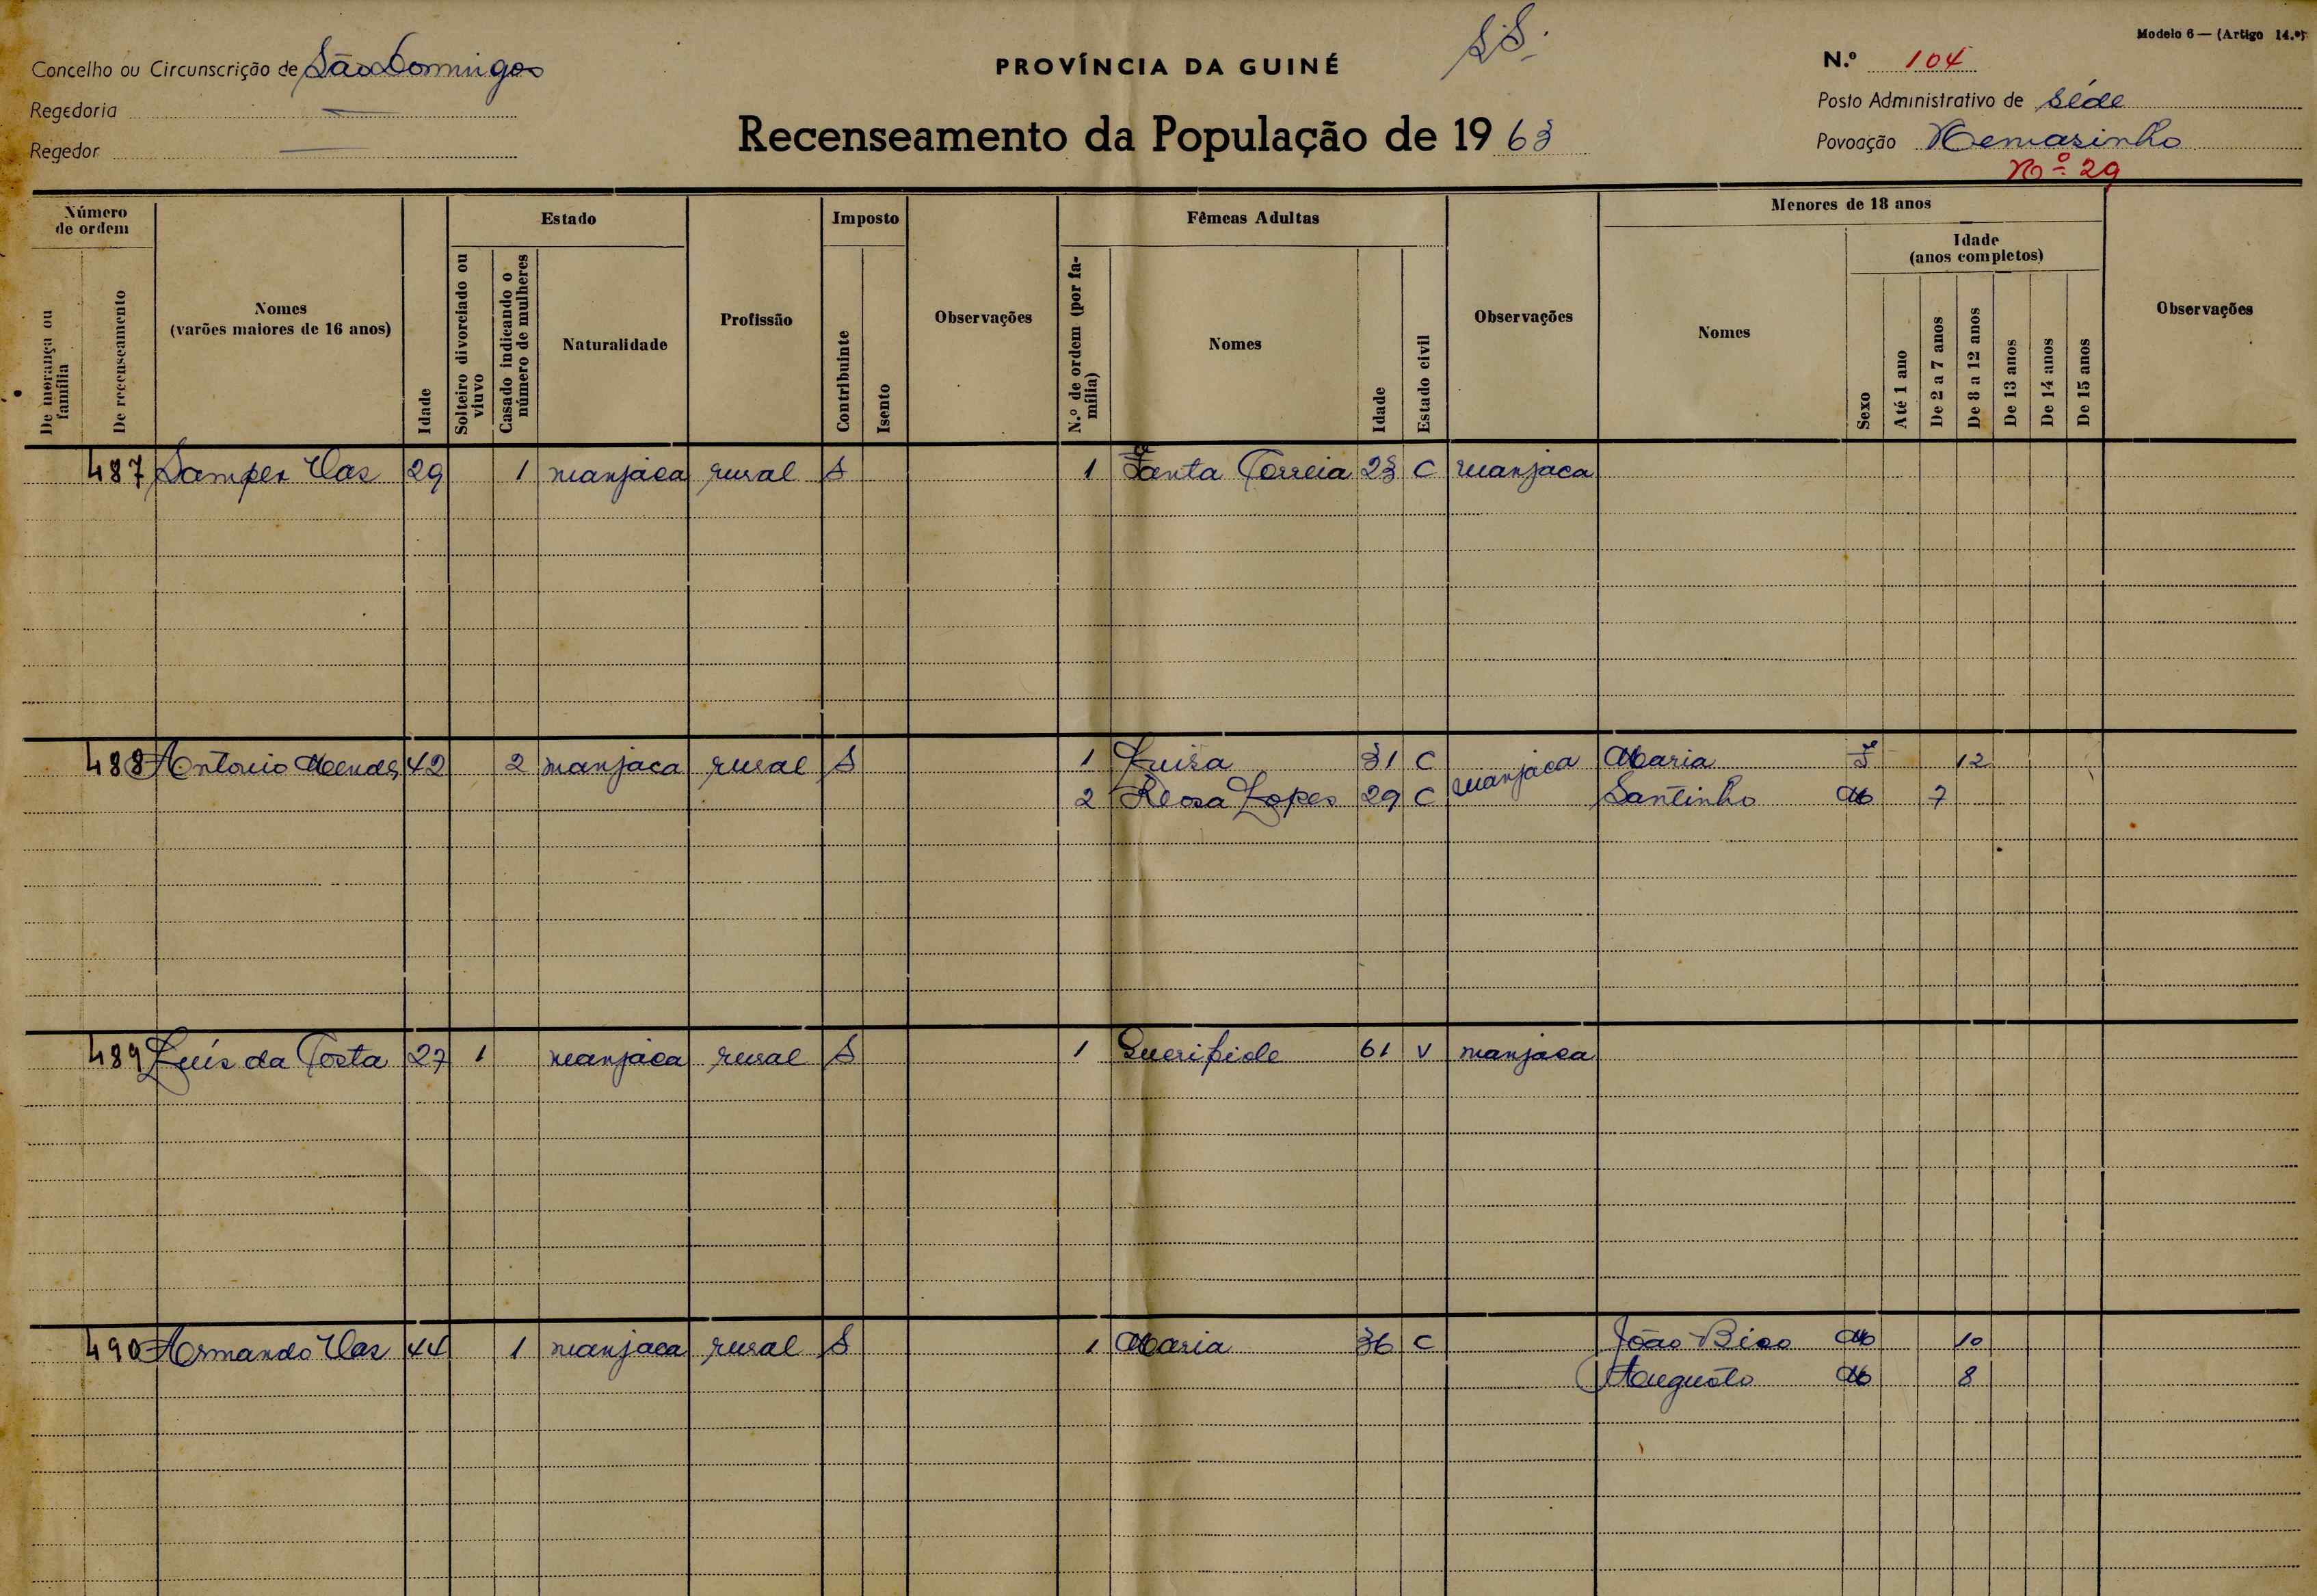 S.S.
Modelo 6 — (Artigo 14.º)
Concelho ou Circunscrição de São Domingos
PROVÍNCIA DA GUINÉ
N.º 104
Regedoria —
Posto Administrativo de Séde
Regedor —
Recenseamento da População de 1963
Povoação
Nº 29
Número de ordem
De morança ou família
De recenseamento
Nomes
(varões maiores de 16 anos)
Idade
Estado
Solteiro divorciado ou viuvo
Casado indicando o número de mulheres
Naturalidade
Profissão
Imposto
Contribuinte
Isento
Observações
Fêmeas Adultas
N.º de ordem (por família)
Nomes
Idade
Estado civil
Observações
Menores de 18 anos
Nomes
Sexo
Idade
(anos completos)
Até 1 ano
De 2 a 7 anos
De 8 a 12 anos
De 13 anos
De 14 anos
De 15 anos
Observações
487 Samper Vas 29 1 manjaca rural S 1 Santa Correia 23 C manjaca
488 Antonio Mendes 42 2 manjaca rural S 1 Luisa 31 C manjaca Maria F 12
2 Rosa Lopes 29 C Santinho M 7
489 Luís da Costa 27 1 manjaca rural S 1 61 V manjaca
490 Armando Vas 44 1 manjaca rural S 1 Maria 36 C João Biso M 10
Augusto M 8